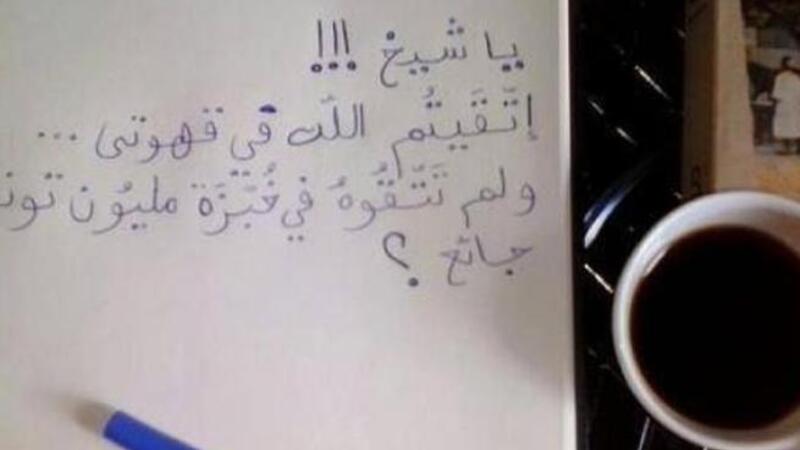 يا شيخ !!!
إتّقَيتُم اللّه في قهوتي ...
ولم تَتّقُوهُ في خُبْزَة مليُون
جائع ؟